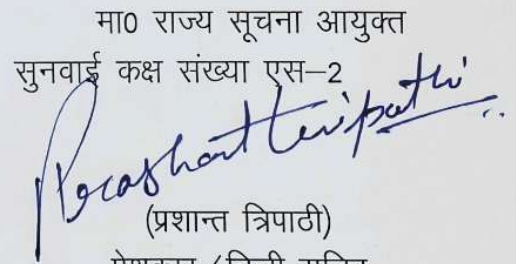 मा0 राज्य सूचना आयुक्त
सुनवाई कक्ष संख्या एस–2
Prashant Tripathi
(प्रशान्त त्रिपाठी)
पेशकार / निजी सचिव